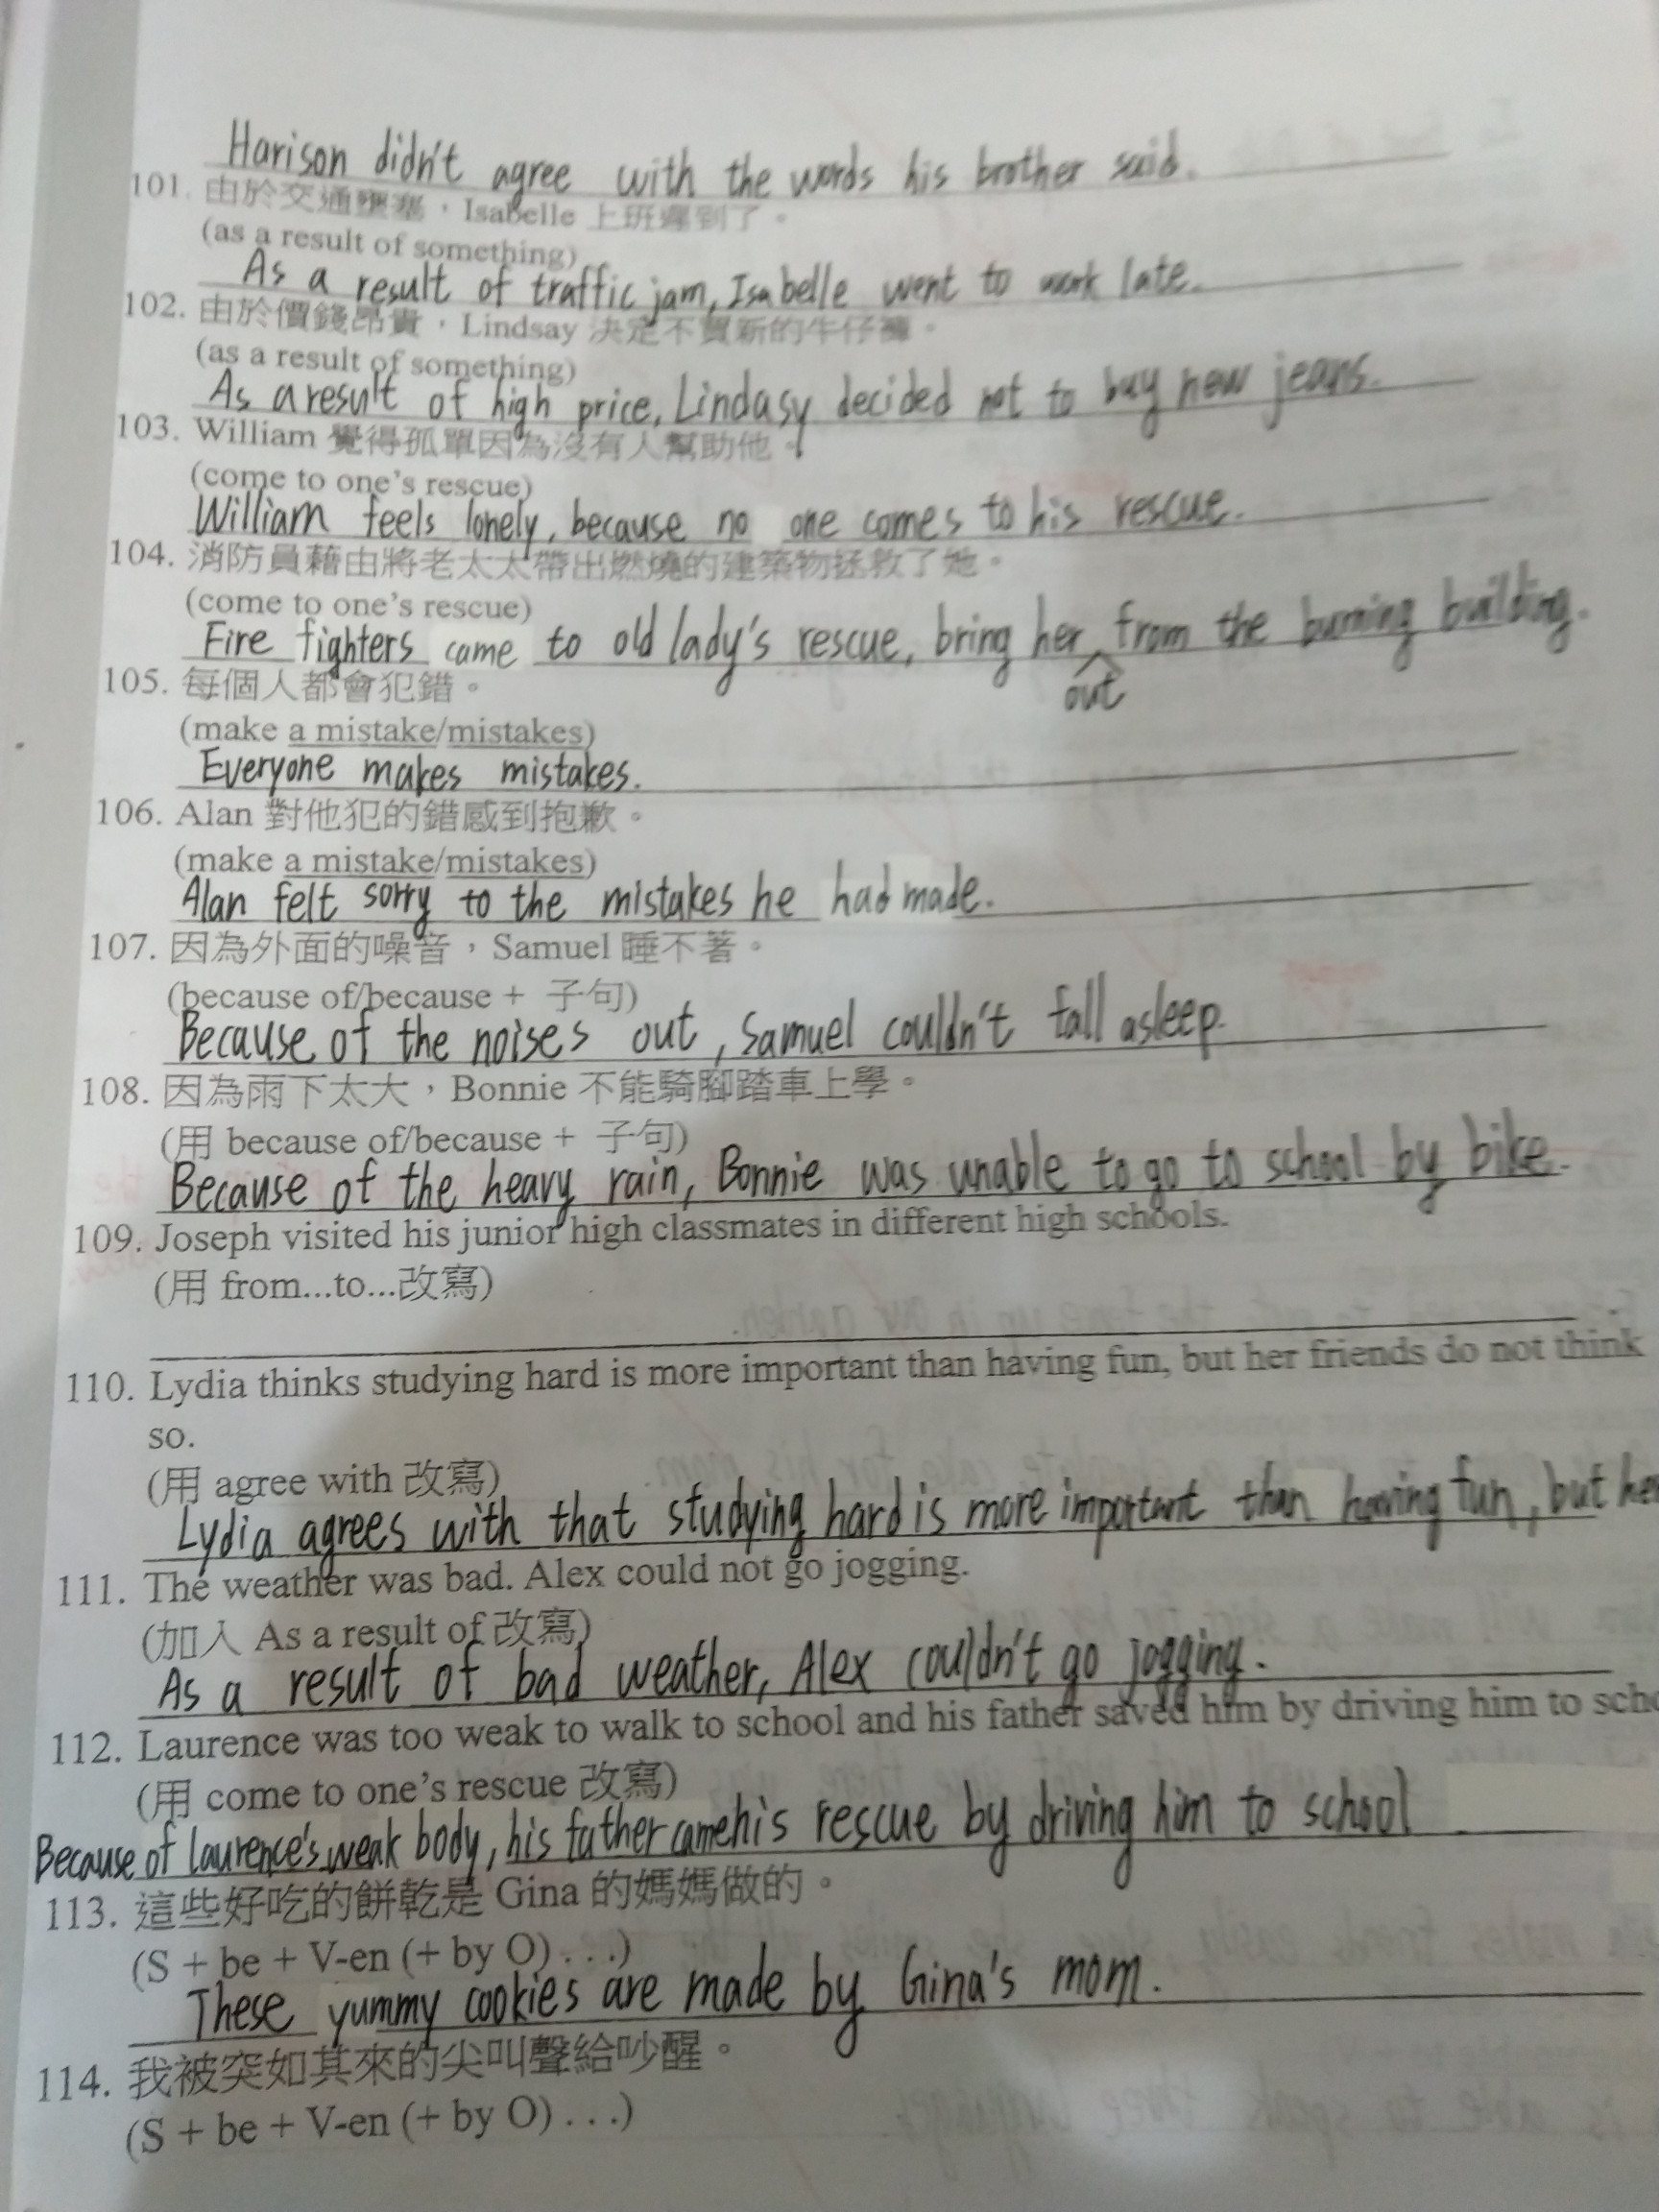 Harison didn't agree with the words his brother said.
101. 由於交通壅塞，Isabelle 上班遲到了。
(as a result of something)
As a result of traffic jam, Isabelle went to work late.
102. 由於價錢昂貴，Lindsay 決定不買新的牛仔褲。
(as a result of something)
As a result of high price, Lindasy decided not to buy new jeans.
103. William 覺得孤單因為沒有人幫助他。
(come to one's rescue)
William feels lonely, because no one comes to his rescue.
104. 消防員藉由將老太太帶出燃燒的建築物拯救了她。
(come to one's rescue)
Fire fighters came to old lady's rescue, bring her out from the burning building.
105. 每個人都會犯錯。
(make a mistake/mistakes)
Everyone makes mistakes.
106. Alan 對他犯的錯感到抱歉。
(make a mistake/mistakes)
Alan felt sorry to the mistakes he had made.
107. 因為外面的噪音，Samuel 睡不著。
(because of/because + 子句)
Because of the noises out, Samuel couldn't fall asleep.
108. 因為雨下太大，Bonnie 不能騎腳踏車上學。
(用 because of/because + 子句)
Because of the heavy rain, Bonnie was unable to go to school by bike.
109. Joseph visited his junior high classmates in different high schools.
(用 from...to...改寫)
110. Lydia thinks studying hard is more important than having fun, but her friends do not think
so.
(用 agree with 改寫)
Lydia agrees with that studying hard is more important than having fun, but her
111. The weather was bad. Alex could not go jogging.
(加入 As a result of 改寫)
As a result of bad weather, Alex couldn't go jogging.
112. Laurence was too weak to walk to school and his father saved him by driving him to scho
(用 come to one's rescue 改寫)
Because of Laurence's weak body, his father came his rescue by driving him to school
113. 這些好吃的餅乾是 Gina 的媽媽做的。
(S + be + V-en (+ by O) . . .)
These yummy cookies are made by Gina's mom.
114. 我被突如其來的尖叫聲給吵醒。
(S + be + V-en (+ by O) . . .)